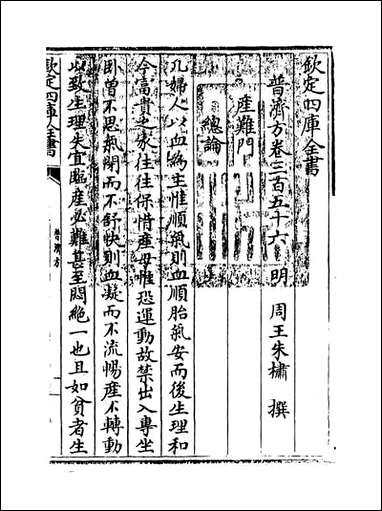 欽定四庫全書
普濟方卷三百五十六
明 周王朱橚 撰
產難門
總論
凡婦人以血為主惟順氣則血順胎氣安而後生理和
今富貴之家往往保惜產母惟恐運動故禁出入專坐
卧曾不思氣閉而不舒快則血凝而不流暢產不轉動
以致生理失宜臨產必難甚至悶絶一也且如貧者生
欽定四庫全書
普濟方